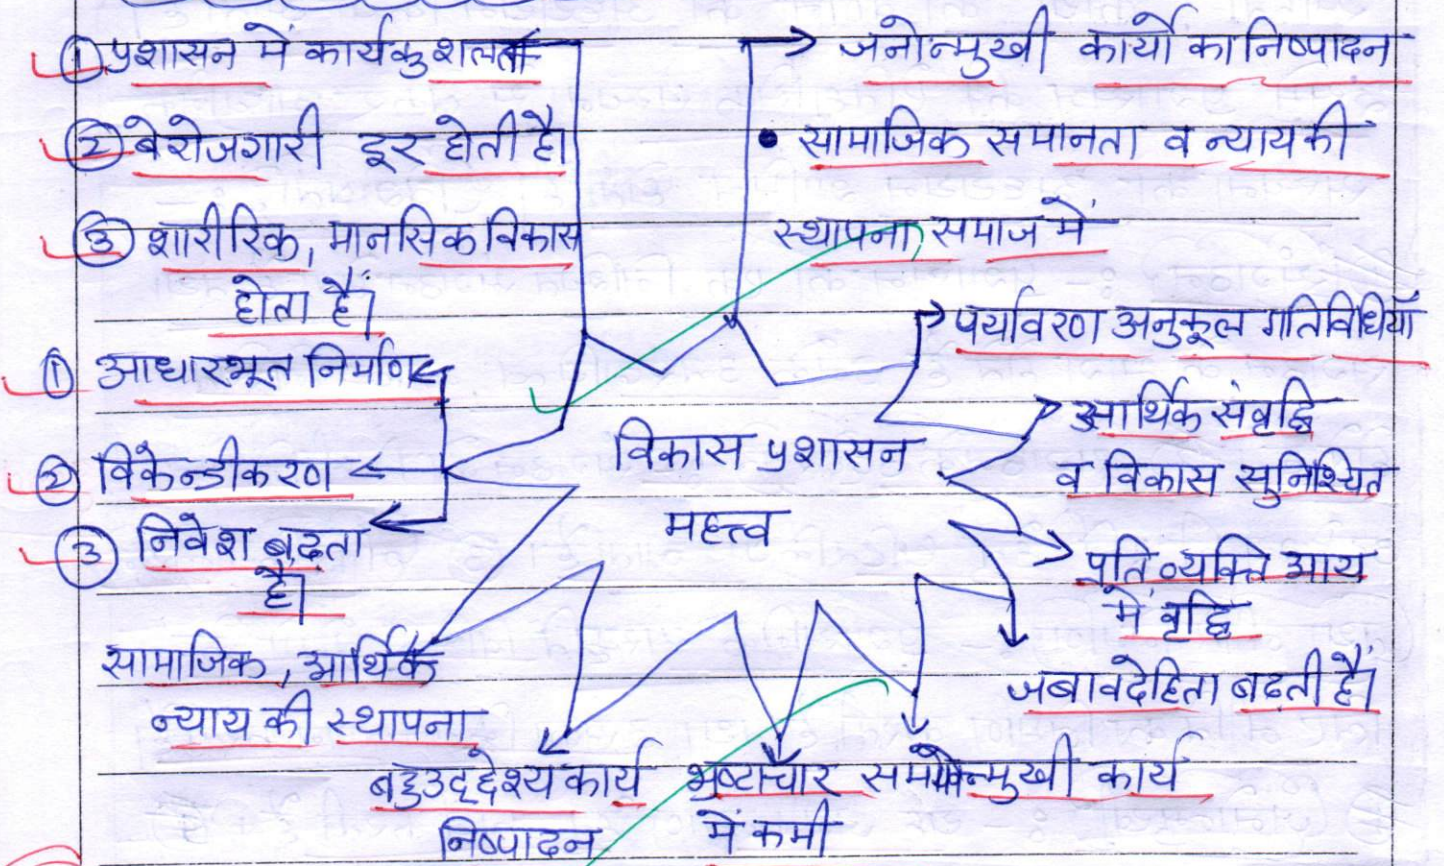 ① प्रशासन में कार्यकुशलता
② बेरोजगारी दूर होती है।
③ शारीरिक, मानसिक विकास
होता है।
① आधारभूत निर्माण
② विकेन्द्रीकरण
③ निवेश बढ़ता
है।
सामाजिक, आर्थिक
न्याय की स्थापना
जनोन्मुखी कार्यो का निष्पादन
• सामाजिक समानता व न्याय की
स्थापना समाज में
पर्यावरण अनुकूल गतिविधियाँ
आर्थिक संवृद्धि
व विकास सुनिश्चित
विकास प्रशासन
महत्त्व
प्रति व्यक्ति आय
में वृद्धि
जबावदेहिता बढ़ती है।
बहुउद्देश्य कार्य
निष्पादन
भ्रष्टाचार
में कमी
कार्य